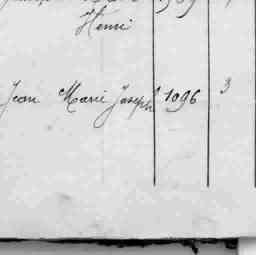 Henri
Jean Marie Joseph 1096 3